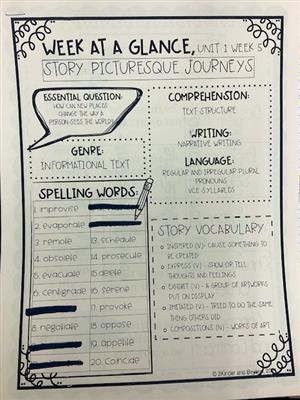 WEEK AT A GLANCE, UNIT 1 WEEK 5
STORY: PICTURESQUE JOURNEYS
ESSENTIAL QUESTION:
HOW CAN NEW PLACES
CHANGE THE WAY A
PERSON SEES THE WORLD?
GENRE:
INFORMATIONAL TEXT
COMPREHENSION:
TEXT STRUCTURE
WRITING:
NARRATIVE WRITING
LANGUAGE:
REGULAR AND IRREGULAR PLURAL
PRONOUNS
VCE SYLLABLES
SPELLING WORDS:
1. improvise
2. evaporate
3. remote
4. obsolete
5. evacuate
6. centigrade
8. negotiate
13. schedule
14. prosecute
15. delete
16. serene
17. provoke
18. oppose
19. appetite
20. coincide
STORY VOCABULARY
INSPIRED (V)- CAUSE SOMETHING TO
BE CREATED
EXPRESS (V) - SHOW OR TELL
THOUGHTS AND FEELINGS
EXHIBIT (V) - A GROUP OF ARTWORKS
PUT ON DISPLAY
IMITATED (V) - TRIED TO DO THE SAME
THING OTHERS DID
COMPOSITIONS (V) - WORKS OF ART